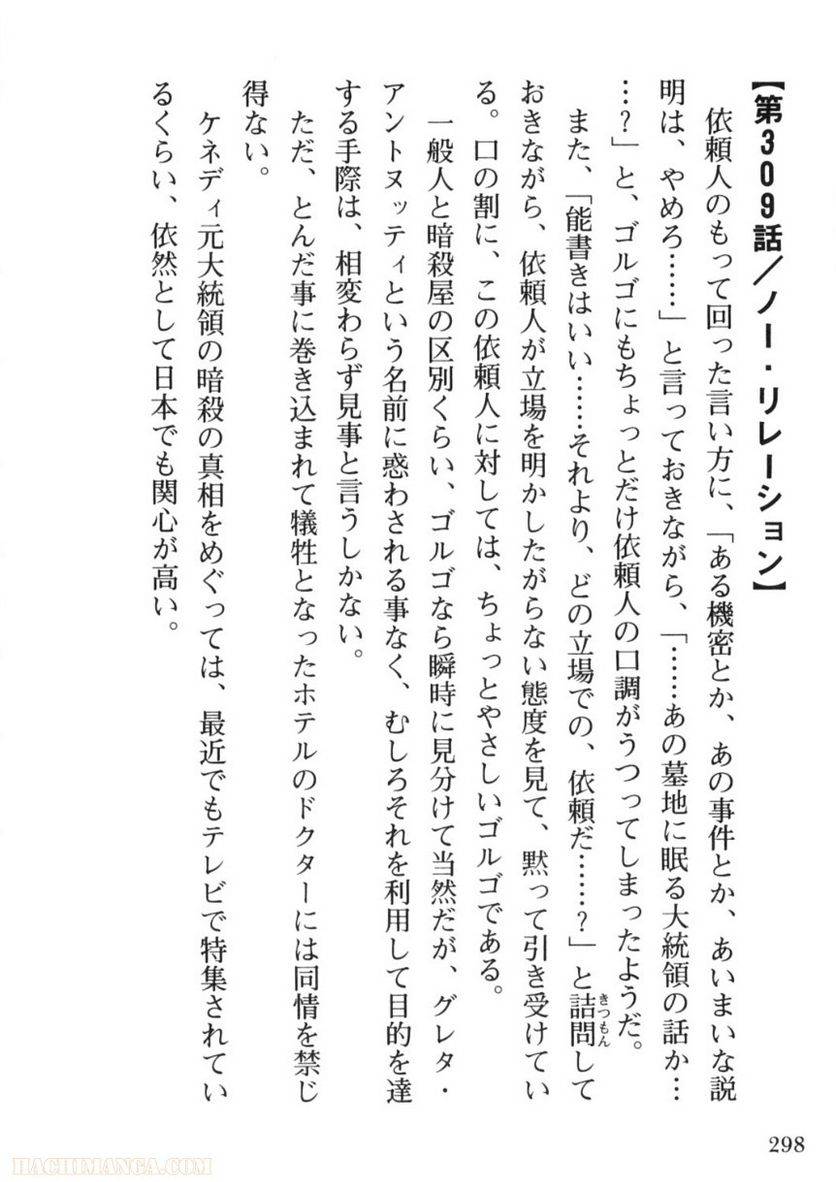 【第309話/ノー・リレーション】
依頼人のもって回った言い方に、「ある機密とか、あの事件とか、あいまいな説
明は、やめろ……」と言っておきながら、「……あの墓地に眠る大統領の話か…
…?」と、ゴルゴにもちょっとだけ依頼人の口調がうつってしまったようだ。
また、「能書きはいい……それより、どの立場での、依頼だ……?」と詰問きつもんして
おきながら、依頼人が立場を明かしたがらない態度を見て、黙って引き受けてい
る。口の割に、この依頼人に対しては、ちょっとやさしいゴルゴである。
一般人と暗殺屋の区別くらい、ゴルゴなら瞬時に見分けて当然だが、グレタ・
アントヌッティという名前に惑わされる事なく、むしろそれを利用して目的を達
する手際は、相変わらず見事と言うしかない。
ただ、とんだ事に巻き込まれて犠牲となったホテルのドクターには同情を禁じ
得ない。
ケネディ元大統領の暗殺の真相をめぐっては、最近でもテレビで特集されてい
るくらい、依然として日本でも関心が高い。
298
HACHIMANGA.COM